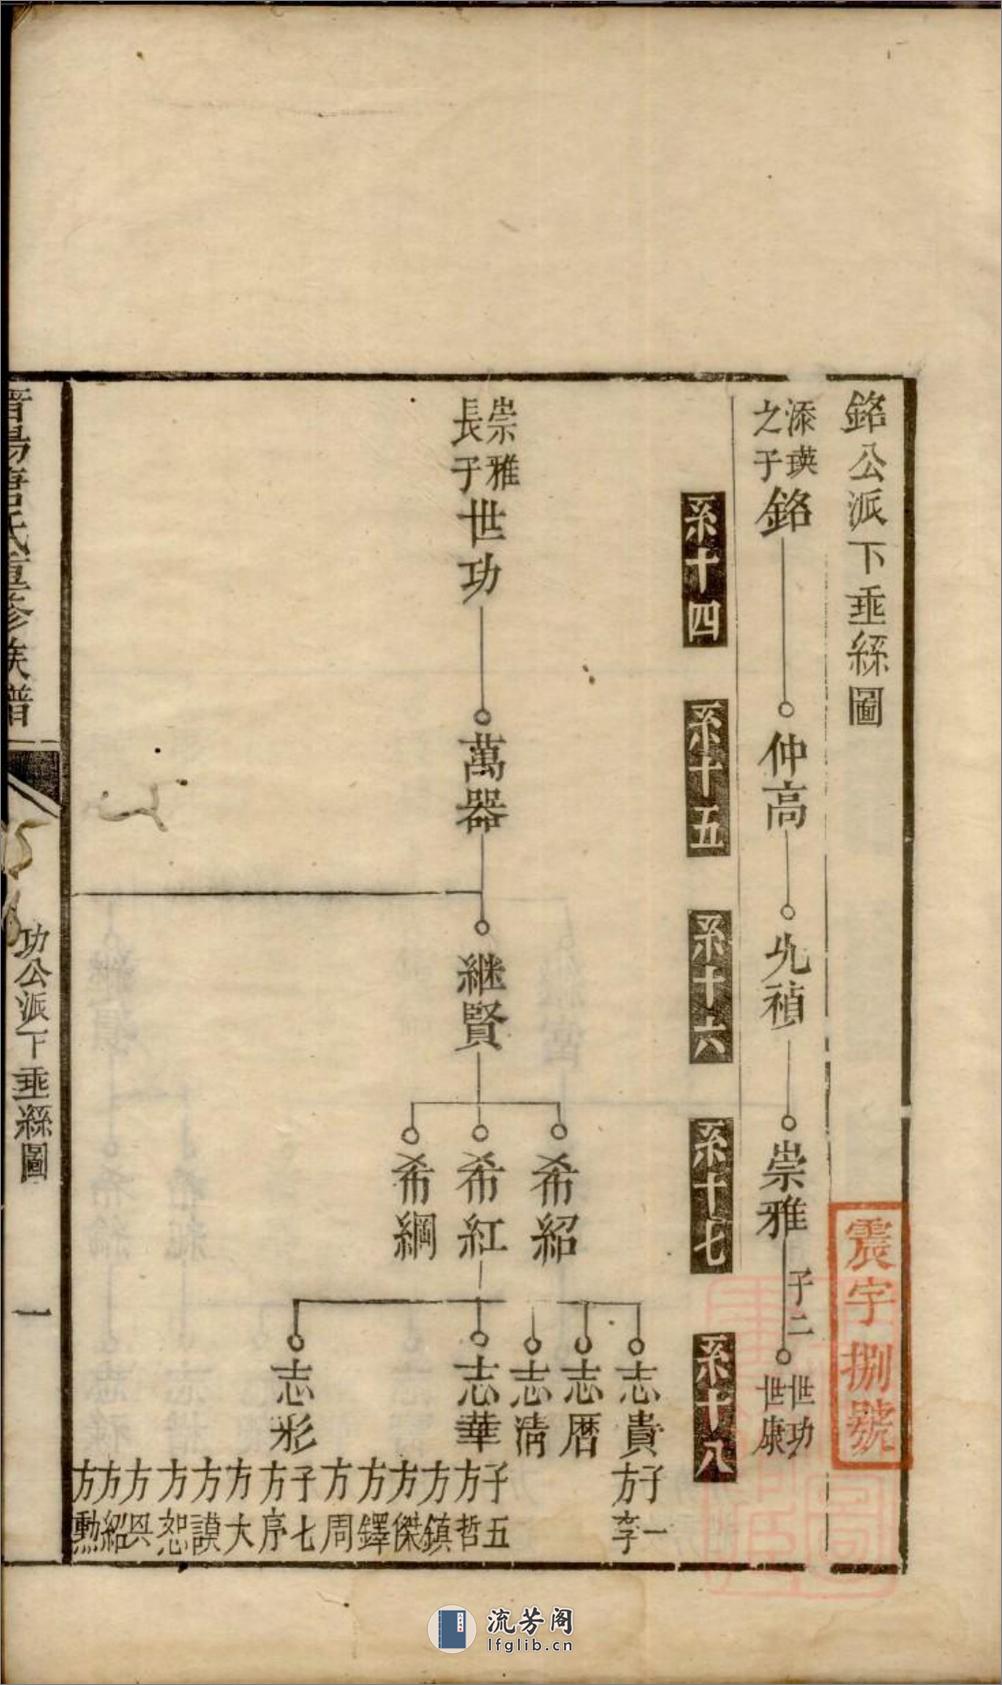 銘公派下垂絲圖
添瑛之子銘
仲高
允禎
崇雅
子二
世功
世康
系十四
系十五
系十六
系十七
系十八
崇雅長子世功
萬器
継賢
希紹
希紅
希綱
志貴
子一
方孝
志暦
志清
志華
子五
方哲
方鎮
方傑
方鐸
方周
志彩
子七
方序
方大
方謨
方恕
方與
方紹
方勲
氏重修族譜
功公派下垂絲圖
一
震字捌號
流芳阁
lfglib.cn